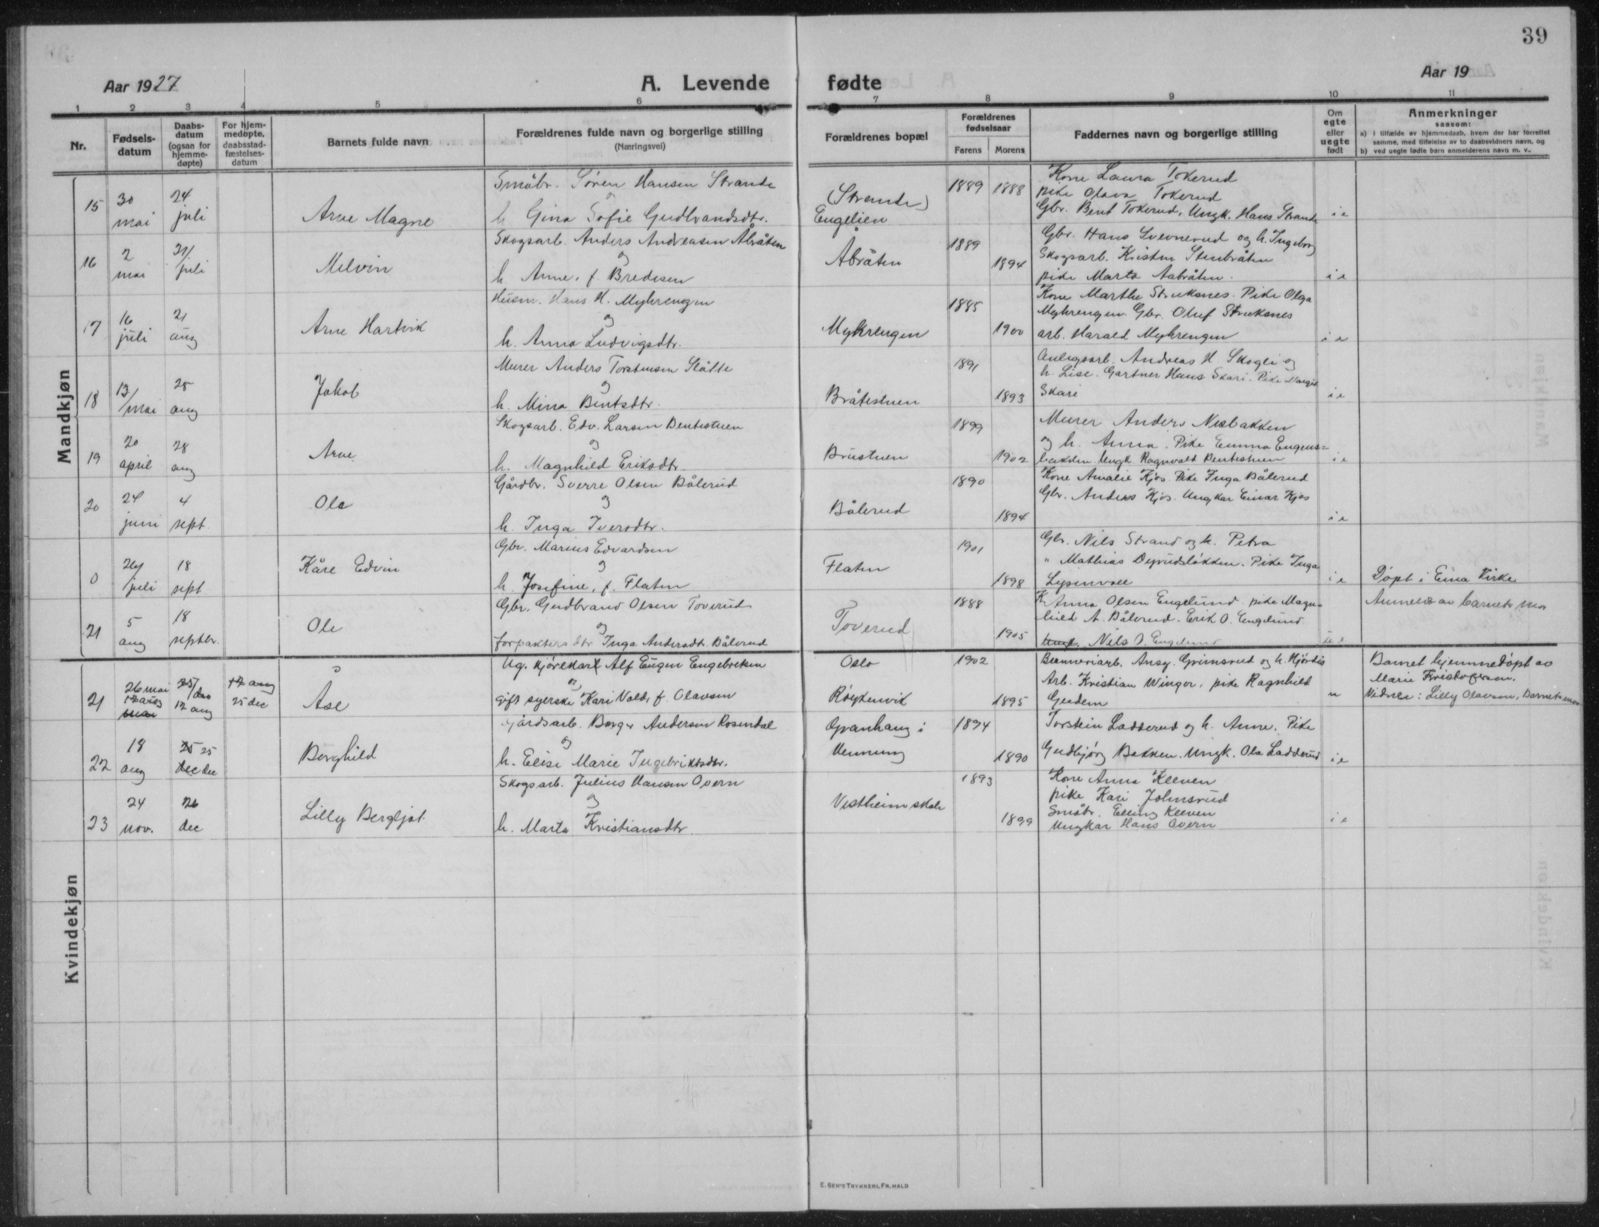 39
Aar 1927
A. Levende
fødte
Aar 19
1 2 3 4 5 6 7 8 9 10 11
Nr.
Fødsels-
datum
Daabs-
datum
(ogsaa for
hjemme-
døpte)
For hjem-
medøpte,
daabsstad-
fæstelses-
datum
Barnets fulde navn
Forældrenes fulde navn og borgerlige stilling
(Næringsvei)
Forældrenes bopæl
Forældrenes
fødselsaar
Farens Morens
Faddernes navn og borgerlige stilling
Om
egte
eller
uegte
født
Anmerkninger
saasom:
a) i tilfælde av hjemmedaab, hvem der har forrettet
samme, med tilføielse av to daabsvidners navn, og
b) ved uegte fødte barn anmelderens navn m. v.
Mandkjøn
15 30 mai 24 juli
Arne Magne
Småbr. Søren Hansen Strande
og
h. Gina Sofie Gudbrandsdtr.
(Strande)
Engelien
1889 1888
Kone Laura Tokerud
pike Olava Tokerud
Gbr. Bent Tokerud, Ungk. Hans Strande
i e
16 2 mai 31/juli
Melvin
Skogsarb. Anders Andreasen Åbråten
og
h. Anne, f. Bredesen
Åbråten
1889
1894
Gbr. Hans Svevnerud og h. Ingeborg
Skogsarb. Kristen Stenbråten
pike Marta Aabråten.
i e
17 16 juli 21 aug
Arne Hartvik
Husm. Hans H. Myhrengen
og
h. Anna Ludvigsdtr.
Myhrengen
1885
1900
Kone Marthe Struksnes. Pike Olga
Myhrengen. Gbr. Oluf Struksnes
arb. Harald Myhrengen
i e
18 13/mai 25 aug
Jakob
Murer Anders Torstensen Slåtte
og
h. Mina Bentsdtr.
Bråtestuen
1891
1893
Anlegsarb. Andreas H. Skogli og
h. Lise. Gartner Hans Skari. Pike Margit
Skare
i e
19 20 april 28 aug
Arne
Skogsarb. Edv. Larsen Bentestuen
og
h. Magnhild Eriksdtr.
Brustuen
1899
1902
Murer Anders Nesbakken
og h. Anna. Pike Emma Engens-
bakken Ungk Ragnvald Bentestuen
i e
20 24 juni 4 sept.
Ole
Gårdbr. Sverre Olsen Bålerud
og
h. Inga Iversdtr.
Bålerud
1890
1894
Kone Amalie Kjos. Pike Inga Bålerud
Gbr. Anders Kjos. Ungkar Einar Kjos
i e
0 26/juli 18 sept
Kåre Edvin
Gbr. Marius Edvardsen
og
h. Josefine, f. Flaten
Flaten
1901
1898
Gbr. Nils Strand og h. Petra
" Mathias Pike Inga
i e
Døpt i Eina Kirke
21 5 aug 18 septbr.
Ole
Gbr. Gudbrand Olsen Toverud
og
forpakters dtr Inga Andersdt. Bålerud
Toverud
1888
1905
K. Anna Olsen Engelund pike Magn-
hild A. Bålerud. Erik O. Engelund
Nils O. Engelund
Anmeldt av barnets mor
Kvindekjøn
21 26 mai 25/dec 12 aug 25 dec
Åse
Ug. kjørekarl Alf Eugen Engebretsen
og
Gift syerske Kari Valds f. Olavsen
Oslo
Røykenvik
1902
1895
Brænneriarb. Ansg. Grimsrud og h. Hjørdis
Arb. Kristian Winger, pike Ragnhild
Gudem
u
Barnet hjemmedøpt av
Marie Kristofersen.
Vidner: Lilly Olavsen, Barnets mor
22 18 aug 25 dec
Borghild
Gårdsarb. Borger Andersen Rosendal
og
h. Elise Marie Ingebriktsdtr.
Granhaug i
Venning
1894
1890
Torstein Ladderud og h. Anne. Pike
Gudbjørg Bakken. Ungk. Ola Ladderud
i e
23 24 nov. 26 dec
Lilly Bergljot
Skogsarb. Julius Hansen Overn
og
h. Marta Kristiansdtr
Vestheim skole
1893
1899
Kone Anna Kleven
pike Kari Johnsrud
Småbr. Elling Kleven
Ungkar Hans Overn
i e
E. SEM'S TRYKKERI, FR. HALD